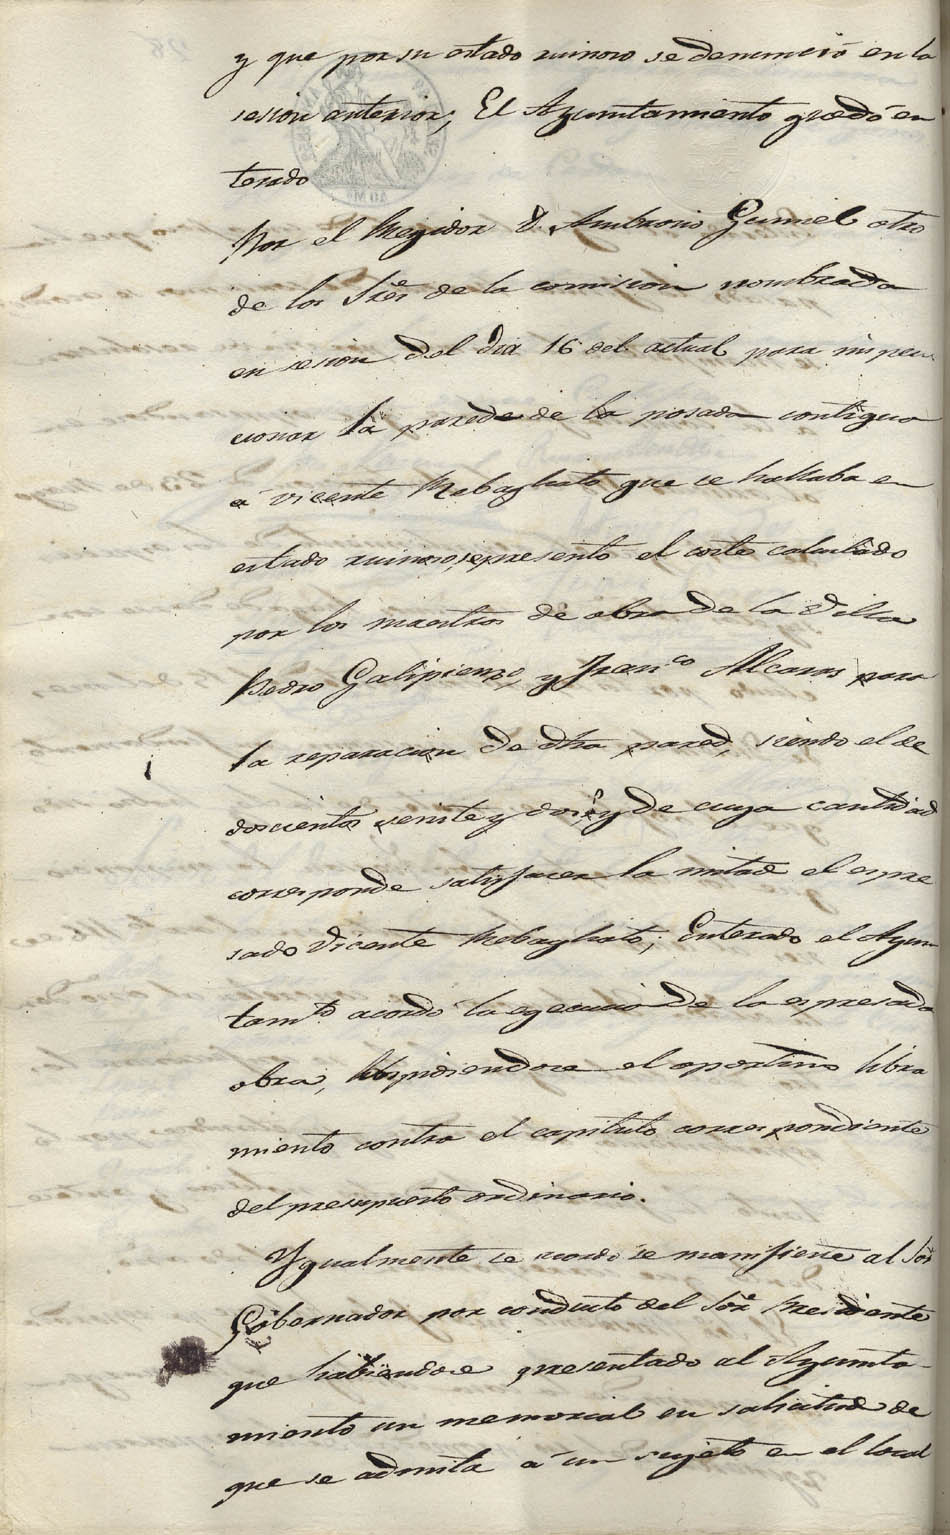 y que por su estado ruinoso se denunció en la
sesion anterior; El Ayuntamiento quedó en
terado
Por el Regidor D. Ambrosio Gumiel otro
de los Sres de la comision nombrada
en sesion del dia 16 del actual para inspec
cionar la parede de la posada contigua
á Vicente Rebagliato que se hallaba en
estado ruinoso, represento el coste calculado
por los maestros de obra de la Villa
Pedro Galipienzo, y Franco Alcaras para
la reparacion de dha pared, siendo el de
doscientos veinte y dos y de cuya cantidad
corresponde satisfacer la mitad el espre
sado Vicente Rebagliato; Enterado el Ayun
tamto acordó la egecucion de la espresada
obra, espidiendose el oportuno libra
miento contra el capitulo correspondiente
del presupuesto ordinario.
Ygualmente se acordó se manifieste al Sor
Gobernador por conducto del Sor Presidente
que habiendose presentado al Ayunta-
miento un memorial en solicitud de
que se admita á un sujeto en el local